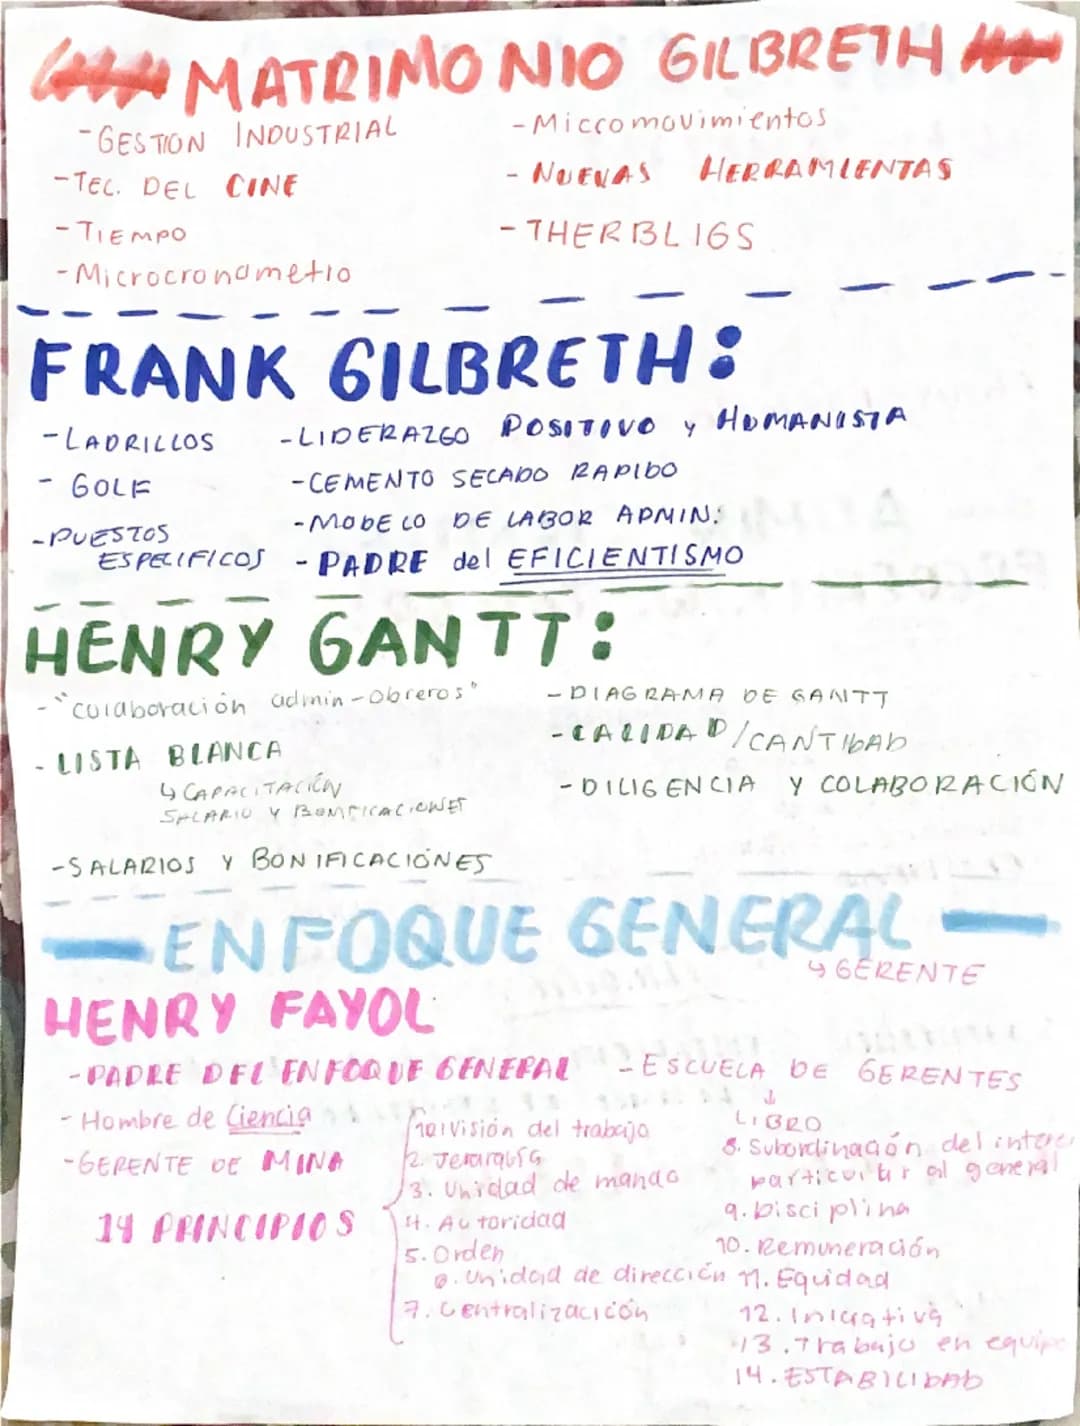 MATRIMONIO GILBRETH
-GESTION INDUSTRIAL
-TEC. DEL CINE
-TIEMPO
-Microcronometro
-Micromovimientos
- NUEVAS HERRAMIENTAS
-THERBLIGS
FRANK GILBRETH:
-LADRILLOS
- GOLF
-PUESTOS
ESPECIFICOS
-LIDERAZGO POSITIVO y HUMANISTA
-CEMENTO SECADO RAPIDO
-MODELO DE LABOR ADMIN.
- PADRE del EFICIENTISMO
HENRY GANTT:
-"colaboración admin-obreros"
- LISTA BLANCA
↳ CAPACITACIÓN
SALARIO Y BONIFICACIONES
-SALARIOS Y BONIFICACIONES
-DIAGRAMA DE GANTT
-CALIDAD/CANTIDAD
-DILIGENCIA Y COLABORACIÓN
ENFOQUE GENERAL
↳ GERENTE
HENRY FAYOL
-PADRE DEL ENFOQUE GENERAL
- Hombre de Ciencia
-GERENTE DE MINA
-ESCUELA DE GERENTES
↓
LIBRO
14 PRINCIPIOS
División del trabajo
2. Jerarquía
3. Unidad de mando
4. Autoridad
5. Orden
6. Unidad de dirección
7. Centralización
8. Subordinación del interes
particular al general
9. Disciplina
10. Remuneración
11. Equidad
12. Iniciativa
13. Trabajo en equipo
14. ESTABILIDAD